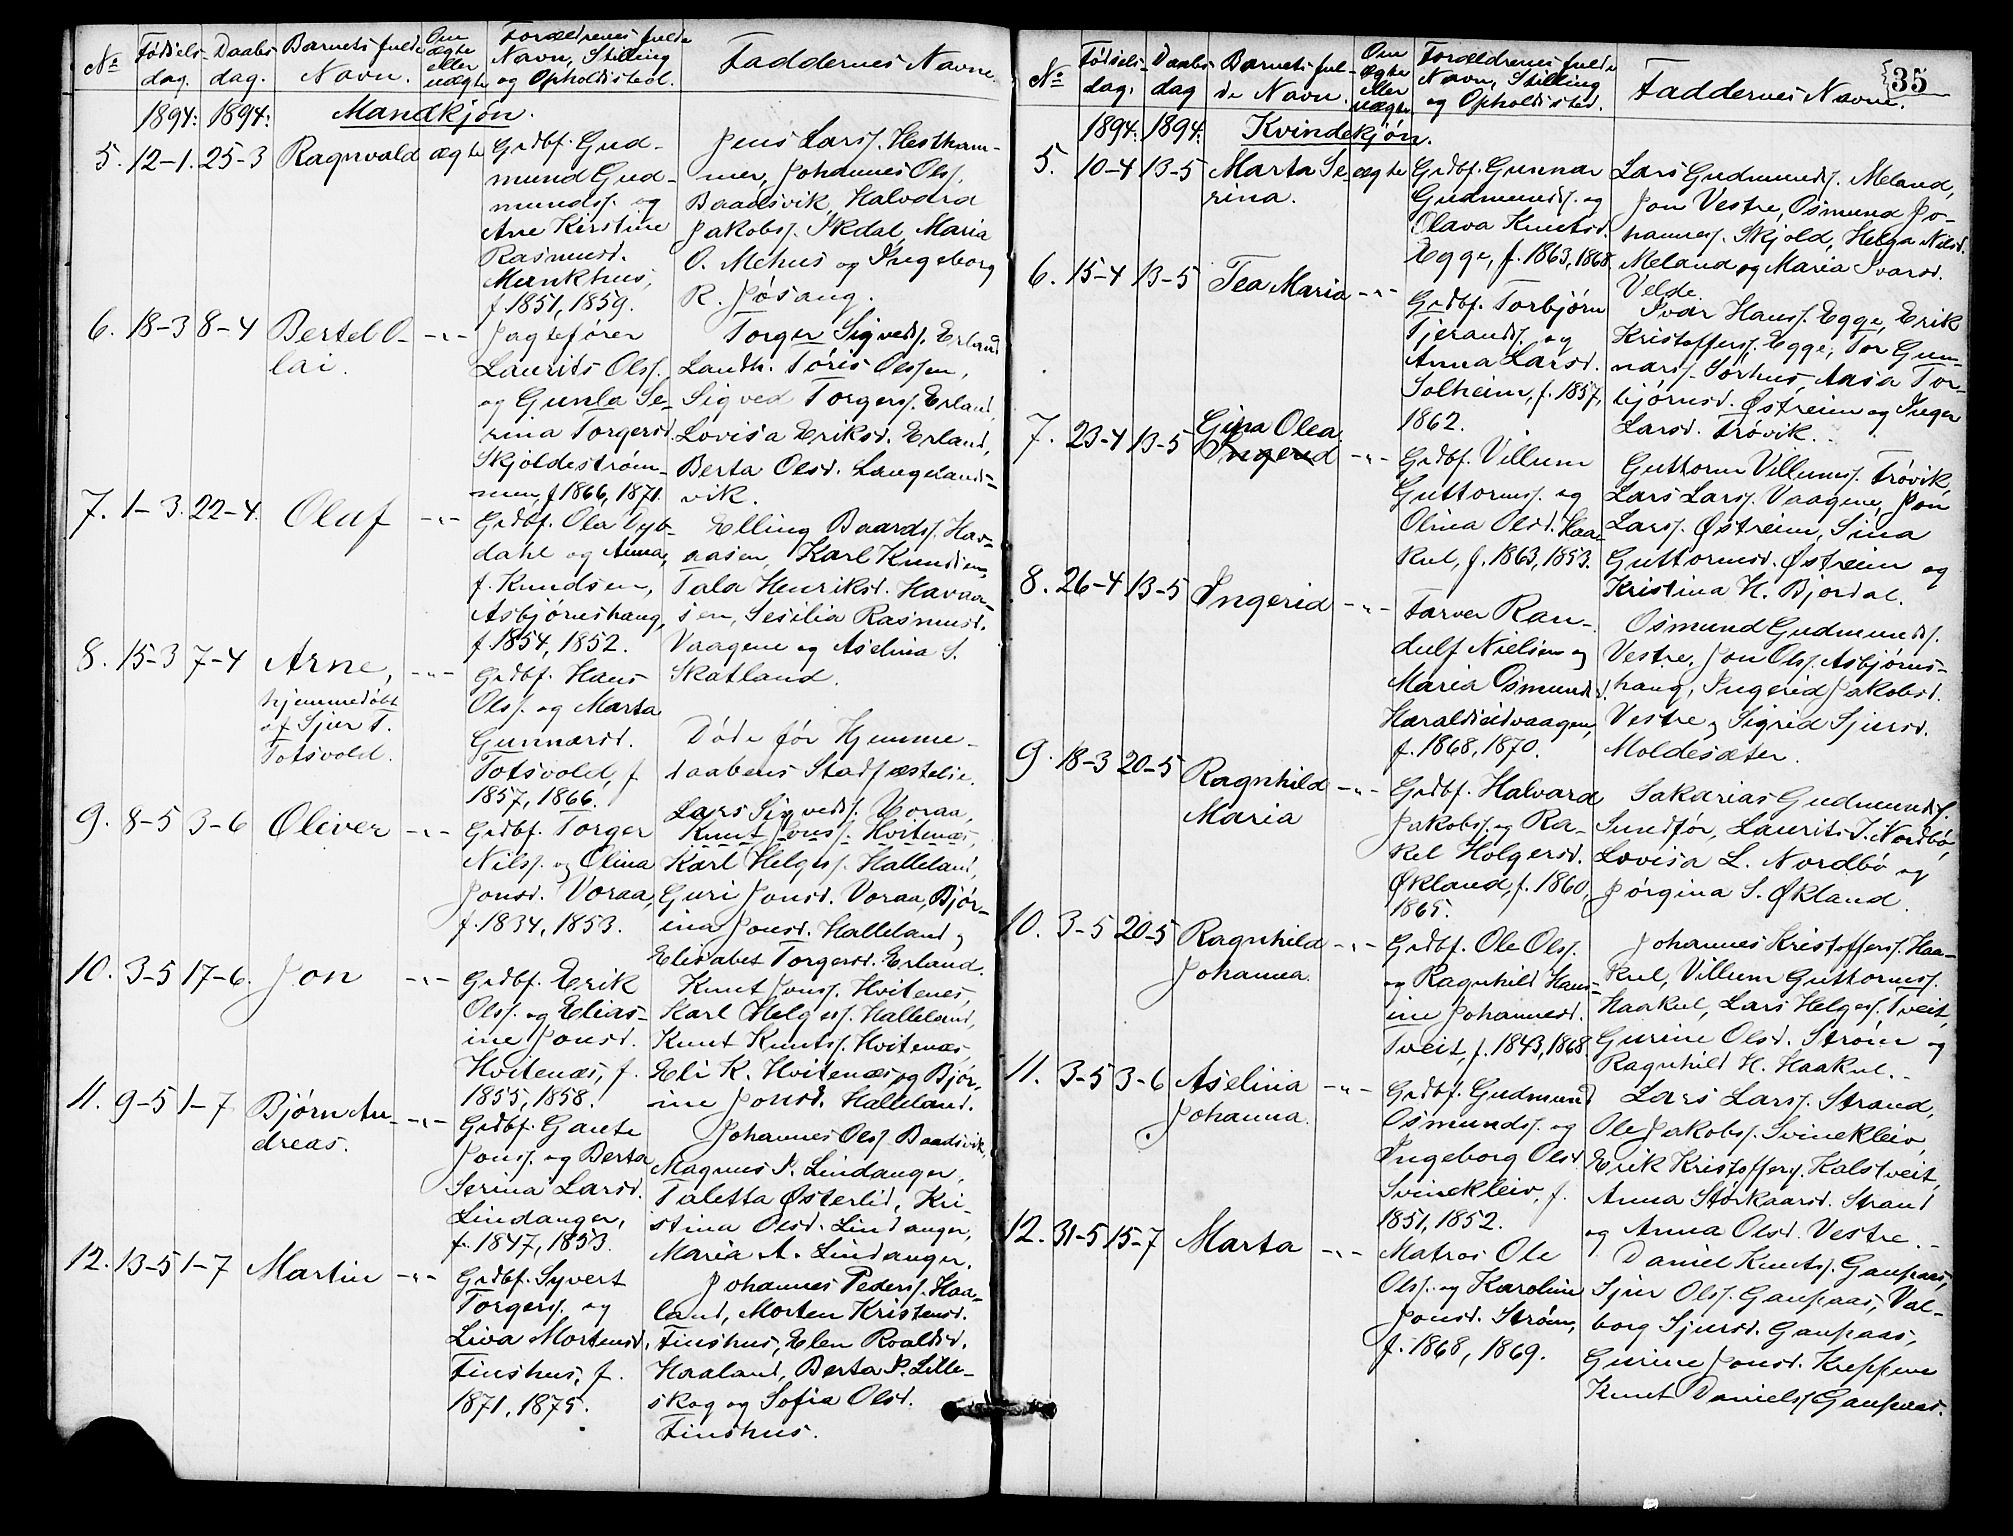 No Fødselsdag. Daabsdag. Barnets fulde Navn. Om ægte eller uægte Forældrenes fulde Navn, Stilling og Opholdssted. Faddernes Navne.
1894. 1894. Mandkjøn.
5. 12-1. 25-3 Ragnvald ægte
Grdbf. Gud-
mund Gud-
munds. og
Ane Kirstine
Rasmusd.
Munkhus,
f. 1851, 1859.
Jens Lars. Hestham-
mer, Johannes Ols.
Baadsvik, Halvard
Jakobs. Økdal, Maria
O. Mehus og Ingeborg
R. Jøsang.
6. 18-3 8-4 Bertel O-
lai. -"-
Jagtefører
Laurits Ols.
og Gunla Se-
rina Torgersd.
Skjoldestrøm-
men, f. 1866, 1871.
Torger Sigveds. Erland
Landh. Tøris Olssen,
Sigved Torgers. Erland,
Lovisa Eriksd. Erland,
Berta Olsd. Langelands-
vik.
7. 1-3. 22-4. Olaf -"-
Grdbf. Ola Dyb-
dahl og Anna,
f. Knudsen,
Asbjørnshaug,
f. 1854, 1852.
Elling Baards. Hav-
aasen, Karl Knudsen,
Tala Henriksd. Havaa-
sen, Sesilia Rasmusd.
Vaagene og Aselina S.
Skatland.
8. 15-3 7-4 Arne,
hjemmedøbt
af Sjur T.
Totsvold. -"-
Grdbf. Hans
Ols. og Marta
Gunnarsd.
Totsvold, f.
1857, 1866.
Døde før Hjemme-
daabens Stadfæstelse.
9. 8-5 3-6 Oliver -"-
Grdbf. Torger
Nils. og Olina
Jonsd. Voraa,
f. 1834, 1853.
Lars Sigveds. Voraa,
Knut Jons. Hvitenæs,
Karl Helges. Halleland,
Guri Jonsd. Voraa, Bjør-
ina Jonsd. Halleland og
Elisabet Torgersd. Erland.
10. 3-5 17-6. Jon -"-
Grdbf. Erik
Ols. og Elias-
ine Jonsd.
Hvitenæs, f.
1855, 1858.
Knut Jons. Hvitenes,
Karl Helges. Halleland,
Knut Knuts. Hvitenæs,
Eli K. Hvitenæs og Bjør-
ine Jonsd. Halleland.
11. 9-5 1-7 Bjørn An-
dreas. -"-
Grdbf. Gaute
Jons. og Berta
Serina Larsd.
Lindanger,
f. 1847, 1853.
Johannes Ols. Baadsvik,
Magnus P. Lindanger,
Taletta Østerlid, Kri-
stina Olsd. Lindanger,
Maria A. Lindanger.
12. 13-5 1-7 Martin -"-
Grdbf. Syvert
Torgers. og
Liva Mortensd.
Finshus, f.
1871, 1875.
Johannes Peders. Haa-
land, Morten Kristensd.
Finshus, Elen Roaldsd.
Haaland, Berta P. Lille-
skog og Sofia Olsd.
Finshus.
35
No Fødselsdag. Daabsdag Barnets fulde Navn. Om ægte eller uægte Forældrenes fulde Navn, Stilling og Opholdssted. Faddernes Navne.
1894. 1894. Kvindekjøn.
5. 10-4 13-5 Marta Se-
rina. ægte
Grdbf. Gunnar
Gudmunds. og
Olava Knutsd.
Egge, f. 1863, 1868
Lars Gudmunds. Meland,
Jon Vestre, Osmund Jo-
hannes. Skjold, Helga Nilsd.
Meland og Maria Ivarsd.
Velde.
6. 15-4 13-5 Tea Maria -"-
Grdbf. Torbjørn
Tjerands. og
Anna Larsd.
Solheim, f. 1857,
1862.
Ivar Hans. Egge, Erik
Kristoffers. Egge, Tor Gun-
nars. Sørhus, Aasa Tor-
bjørnsd. Østreim og Inger
Larsd. Trøvik.
7. 23-4 13-5 Gina Olea
Ingerid -"-
Grdbf. Villum
Guttorms. og
Olina Olsd. Haa-
kul, f. 1863, 1853.
Guttorm Villums. Trøvik,
Lars Lars. Vaagene, Jon
Lars. Østreim, Sina
Guttormsd. Østreim og
Kristina H. Bjordal.
8. 26-4 13-5 Ingerid -"-
Farver Ran-
dulf Nielsen og
Maria Osmundsd.
Haraldseidvaagen,
f. 1868, 1870.
Osmund Gudmunds.
Vestre, Jon Ols. Asbjørns-
haug, Ingerid Jakobsd.
Vestre og Sigrid Sjursd.
Moldesæter.
9. 18-3 20-5 Ragnhild
Maria -"-
Grdbf. Halvard
Jakobs. og Ra-
kel Holgersd.
Økland, f. 1860,
1865.
Sakarias Gudmunds.
Sundfør, Laurits I. Nordbø,
Lovisa L. Nordbø og
Jørgina S. Økland.
10. 3-5 20-5 Ragnhild
Johanna. -"-
Grdbf. Ole Ols.
og Ragnhild Hans-
ine Johannesd.
Tveit, f. 1843, 1868.
Johannes Kristoffers. Haa-
kul, Villum Guttorms.
Haakul, Lars Helges. Tveit,
Gurine Olsd. Strøm og
Ragnhild H. Haakul.
11. 3-5 3-6 Aselina
Johanna. -"-
Grdbf. Gudmund
Osmunds. og
Ingeborg Olsd.
Svinekleiv, f.
1851, 1852.
Lars Lars. Strand,
Ole Jakobs. Svinekleiv,
Erik Kristoffers. Kalstveit,
Anna Størkaarsd. Strand
og Anna Olsd. Vestre.
12. 31-5 15-7 Marta -"-
Matros Ole
Ols. og Karoline
Jonsd. Strøm,
f. 1868, 1869.
Daniel Knuts. Gaupaas,
Sjur Ols. Gaupaas, Val-
borg Sjursd. Gaupaas,
Gurine Jonsd. Kreppene
Knut Daniels. Gaupaas.